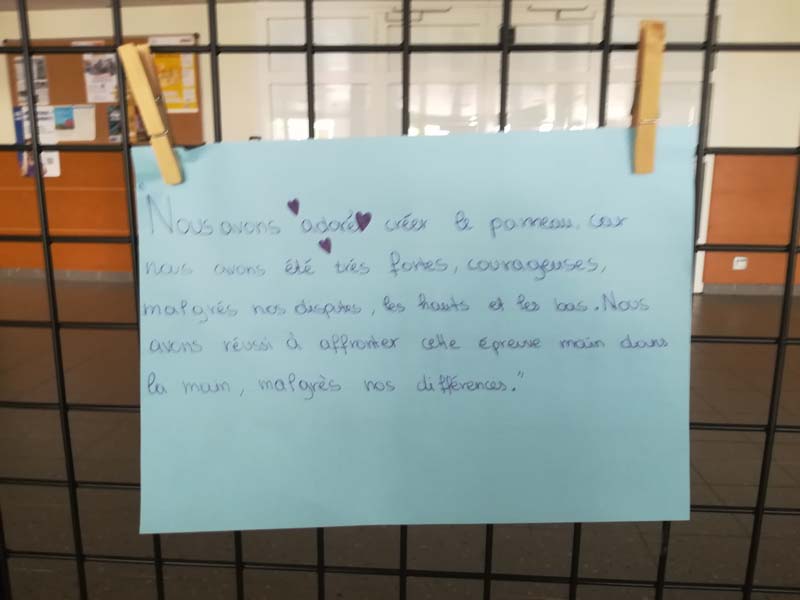 "Nous avons adoré créer le panneau, car
nous avons été très fortes, courageuses,
malgrés nos disputes, les hauts et les bas. Nous
avons réussi à affronter cette épreuve main dans
la main, malgrès nos différences."